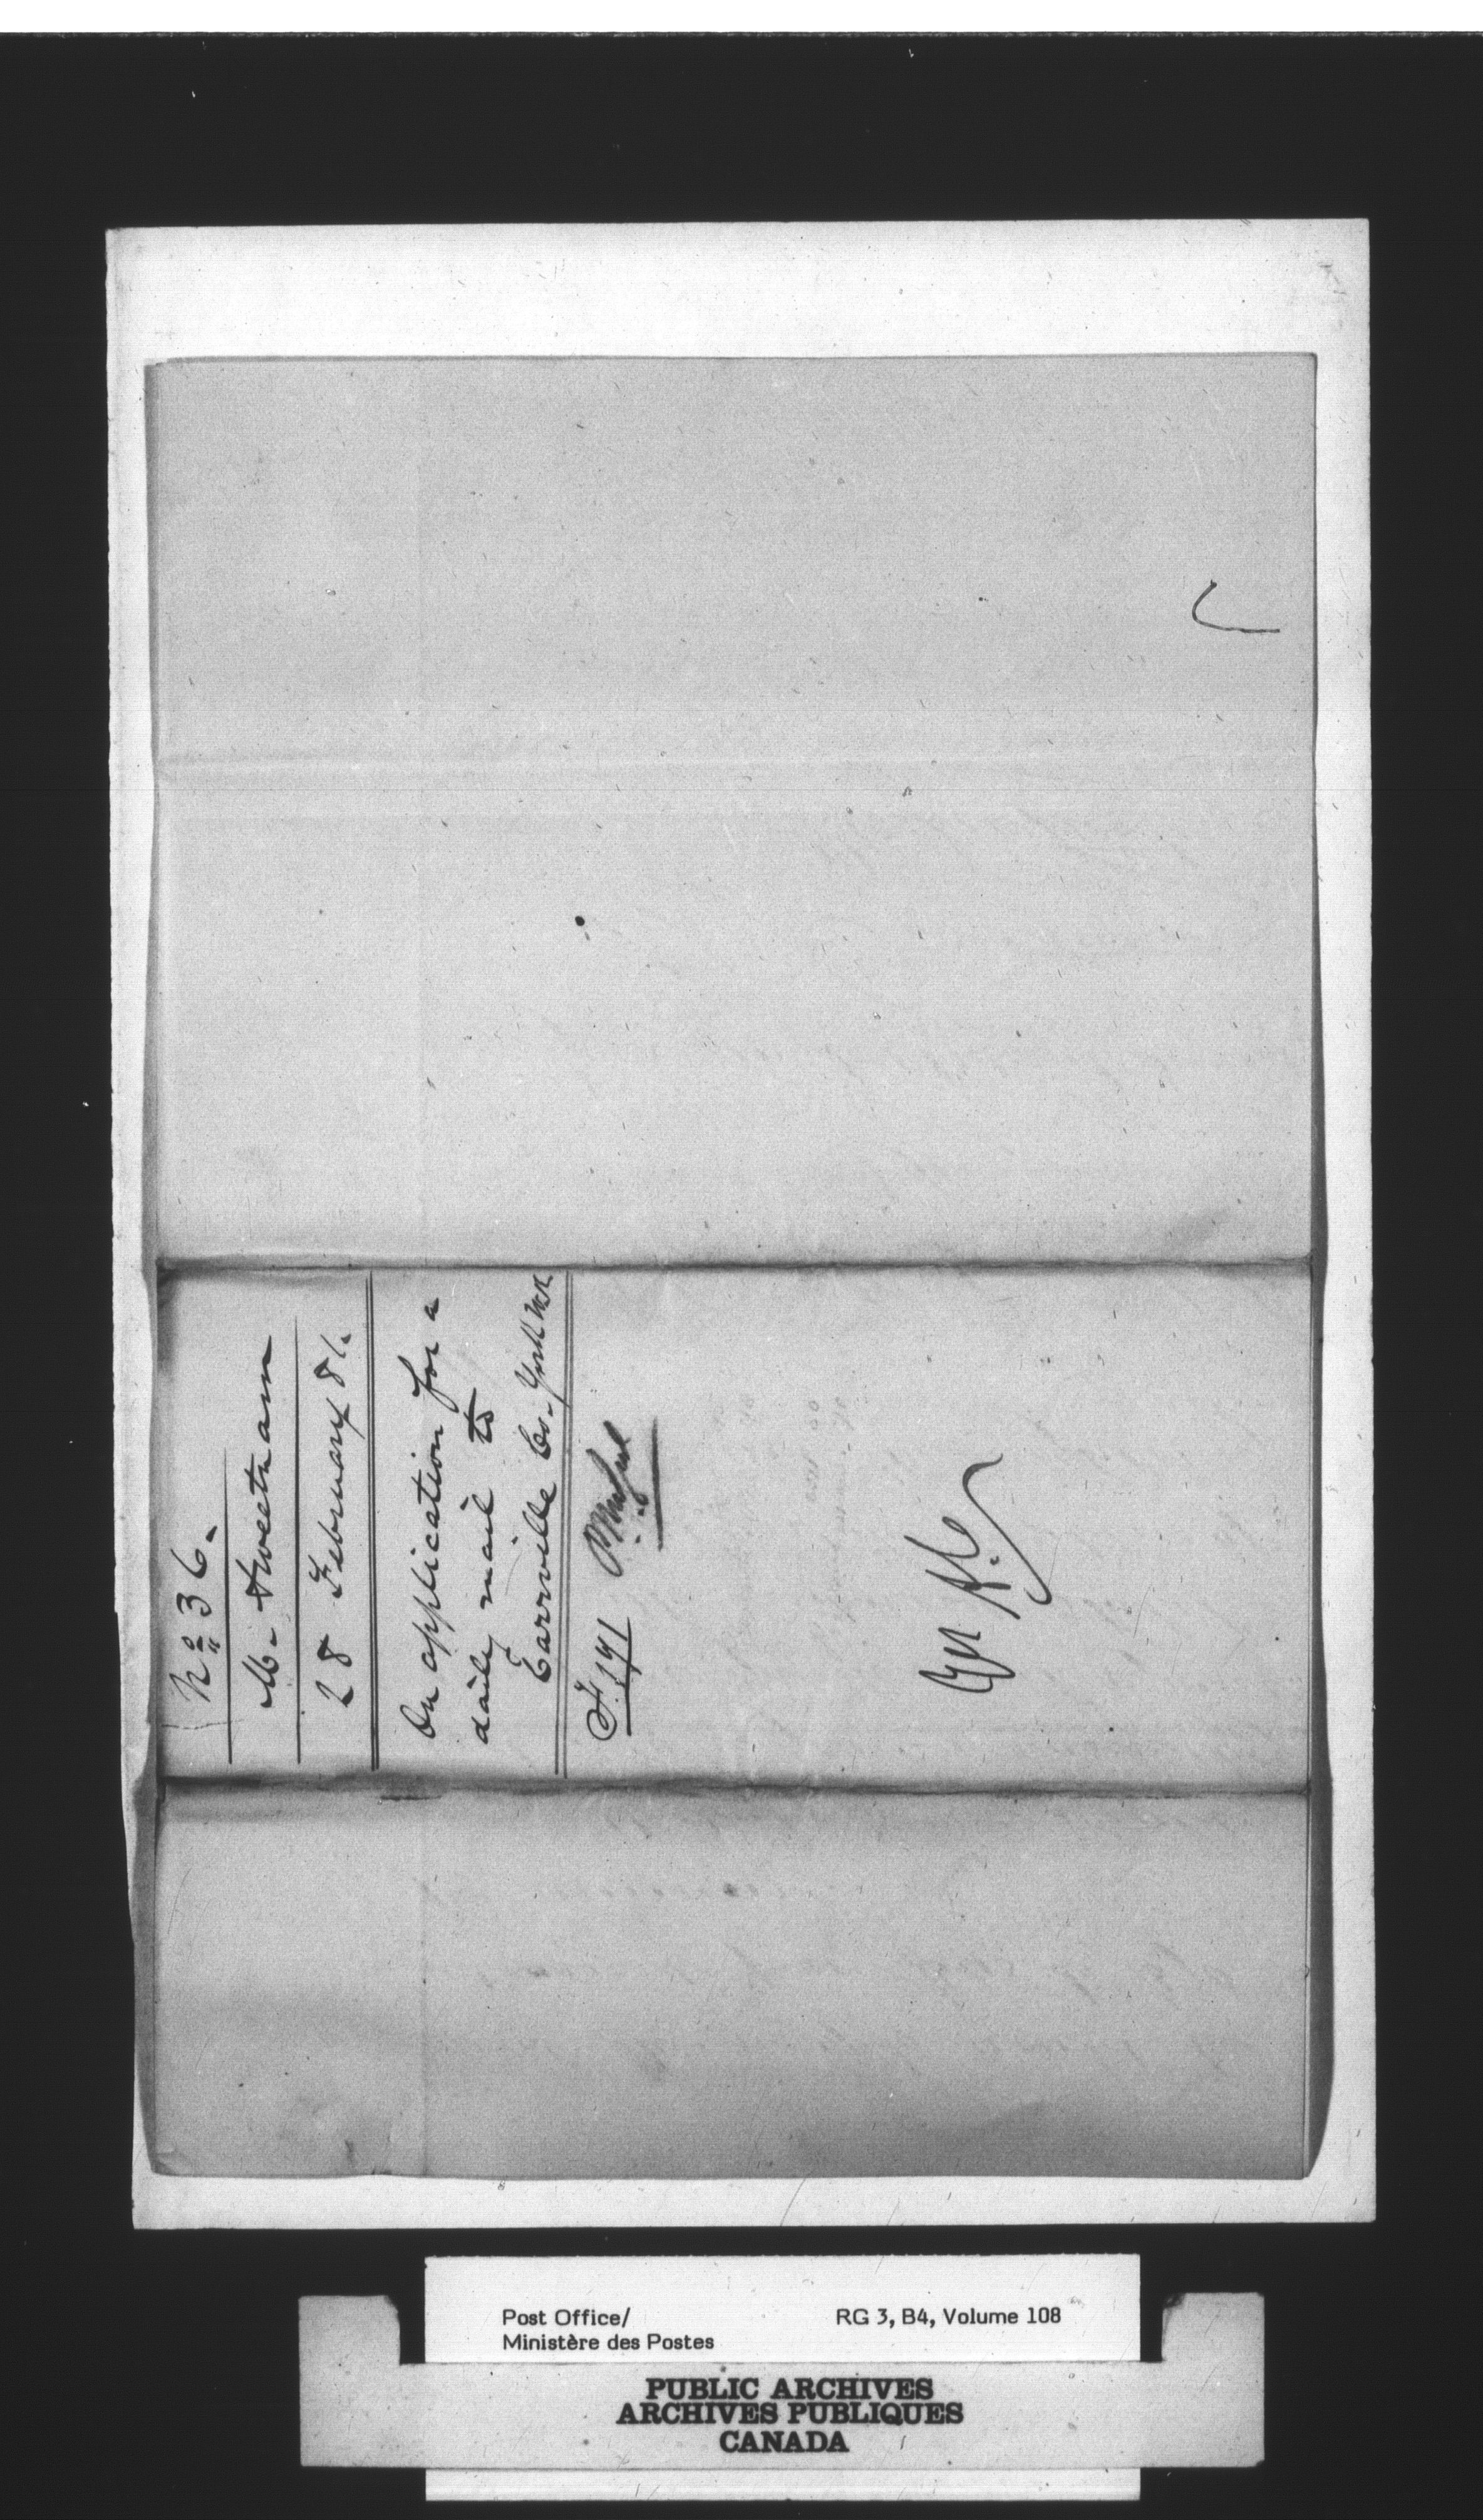 No 36.
M. Sweetnam
28 February 81.
On application for a
daily mail to
Carrville Co. York
F. 141
Post Office/
Ministère des Postes
RG 3, B4, Volume 108
PUBLIC ARCHIVES
ARCHIVES PUBLIQUES
CANADA